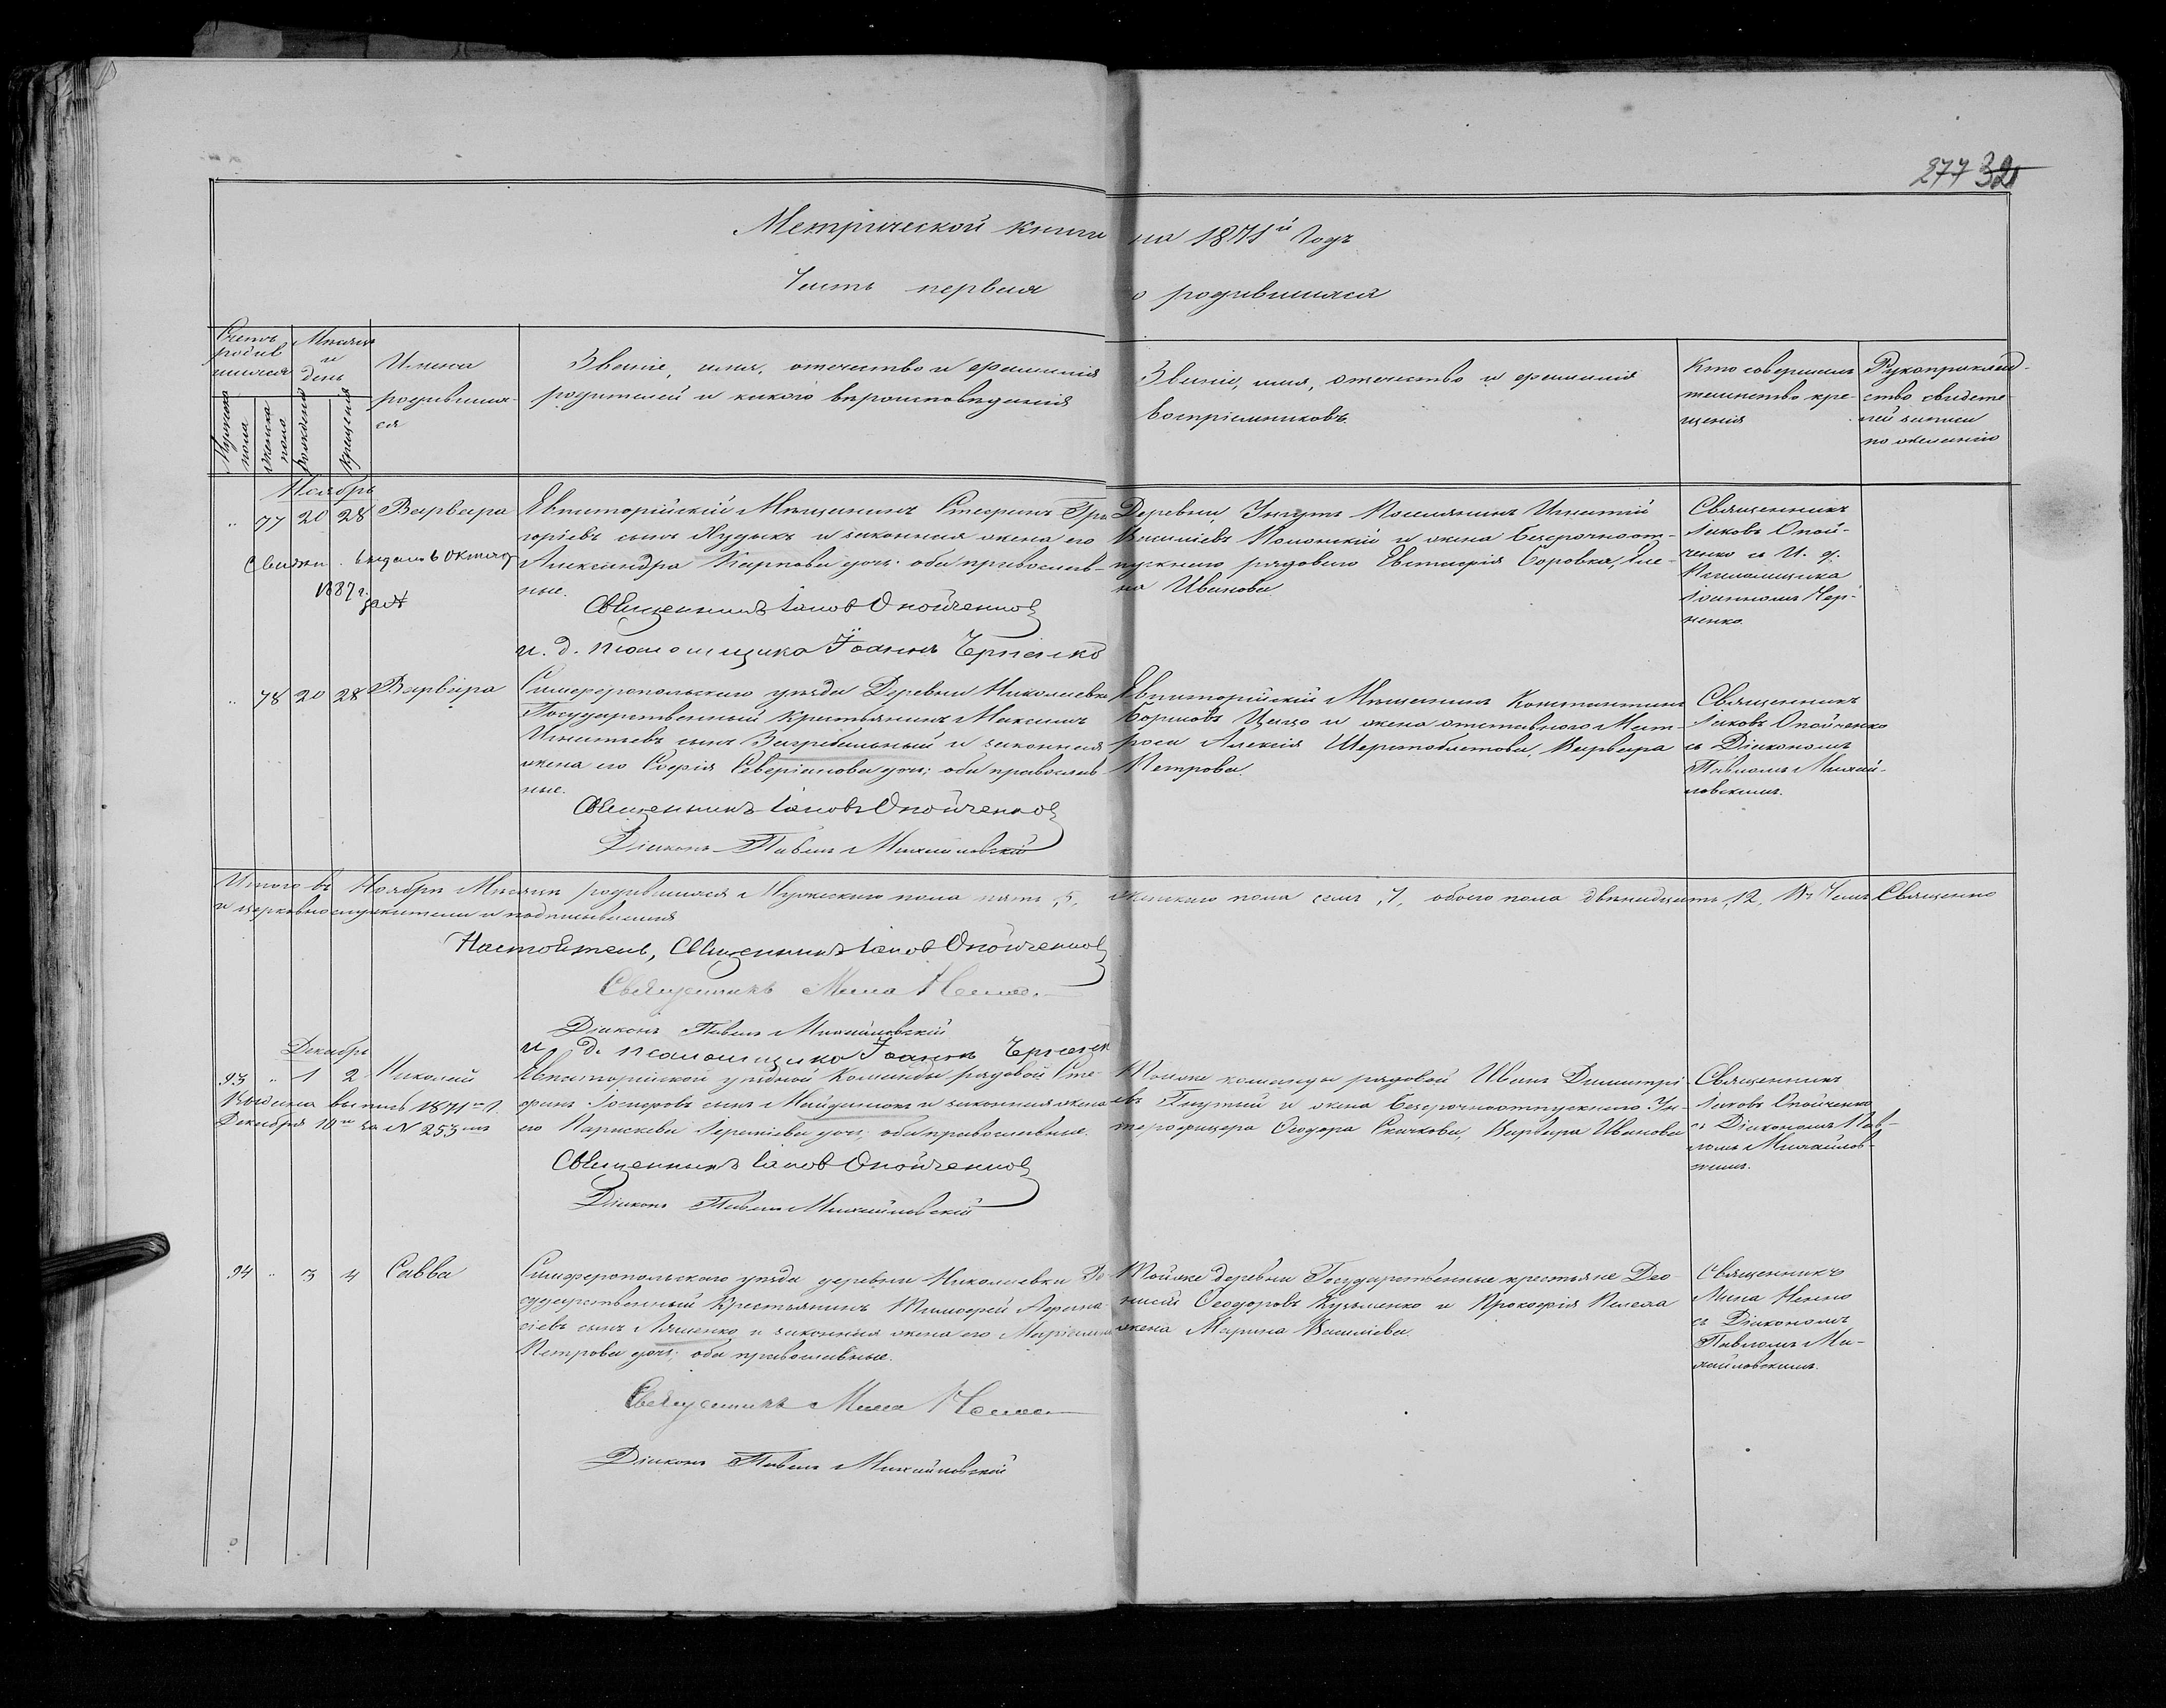 277 32
Метрической книги на 1871й Годъ
Часть первая о родившихся
Счетъ родив шихся
Мужска пола
женска пола
Мѣсяцъ и день
рожденія
крещенія
Имена
родивших-
ся
Званіе, имя, отечество и фамилія
родителей и какого вѣроисповѣданія
Званіе, имя, отечество и фамилія
воспріемниковъ.
Кто совершалъ
таинство кре-
щенія
Рукоприклад-
ство свидѣте-
лей записи
по желанію
Ноябрь
" 77 20 28 Варвара
Евпаторійскій Мѣщанинъ Стефанъ Гри
горіевъ сынъ Кудыкъ и законная жена его
Александра Карпова дочь: оба православ-
ные.
выдано 6 Октяб
1887 г.
Священникъ Іаковъ Опойченковъ
и. д. псаломщика Іоаннъ Черненко
Деревни Поселянинъ Игнатій
Василіевъ и жена безсрочноот-
пускнаго рядоваго Евстафія Боровка, Еле-
на Иванова
Священникъ
Іаковъ Опой-
ченко съ И. д.
Псаломщика
Іоанномъ Чер-
ненко.
" 78 20 28 Варвара
Симферопольскаго уѣзда Деревни Николаевки
Государственный крестьянинъ Максимъ
Игнатьевъ сынъ Загребельный и законная
жена его Софія Северіанова дочь; оба православ-
ные.
Священникъ Іаковъ Опойченковъ
Діаконъ Павелъ Михайловскій
Евпаторійскій Мѣщанинъ Константинъ
Борисовъ Цацо и жена отставнаго Мат-
роса Алексія Шерстобитова, Варвара
Петрова.
Священникъ
Іаковъ Опойченко
съ Діакономъ
Павломъ Михай-
ловскимъ.
Итого въ Ноябрѣ Мѣсяцѣ родившихся Мужескаго пола пять, 5, женскаго пола семь, 7, обоего пола двѣнадцать, 12, Въ чемъ Священно
и церковнослужители и подписываемся
Настоятель, Священникъ Іаковъ Опойченковъ
Священникъ Мина Ненно
Діаконъ Павелъ Михайловскій
и. д. псаломщика Іоаннъ Черненк
Декабрь
93 " 1 2 Николай
Выдана выпись 1871го г.
Декабря 10го за № 253мъ
Евпаторійской уѣздной Команды рядовой Сте-
фанъ сынъ Майданюкъ и законная жена
его Параскева дочь; оба православные.
Священникъ Іаковъ Опойченковъ
Діаконъ Павелъ Михайловскій
Тойже команды рядовой Иванъ Димитрі-
евъ и жена безсрочноотпускнаго Ун-
терофицера Ѳеодора Скачкова, Варвара Иванова
Священникъ
Іаковъ Опойченко
съ Діакономъ Пав-
ломъ Михайлов-
скимъ.
94 " 3 4 Савва
Симферопольскаго уѣзда деревни Николаевки Го-
сударственный Крестьянинъ Тимофей Аѳана-
сіевъ сынъ Ляшенко и законная жена его
Петрова дочь; оба православные.
Священникъ Мина Ненно
Діаконъ Павелъ Михайловскій
Тойже деревни Государственные крестьяне Део-
нисій Ѳеодоровъ Кузьменко и Прокофія
жена Марина Василіева.
Священникъ
Мина Ненно
съ Діакономъ
Павломъ Ми-
хайловскимъ.